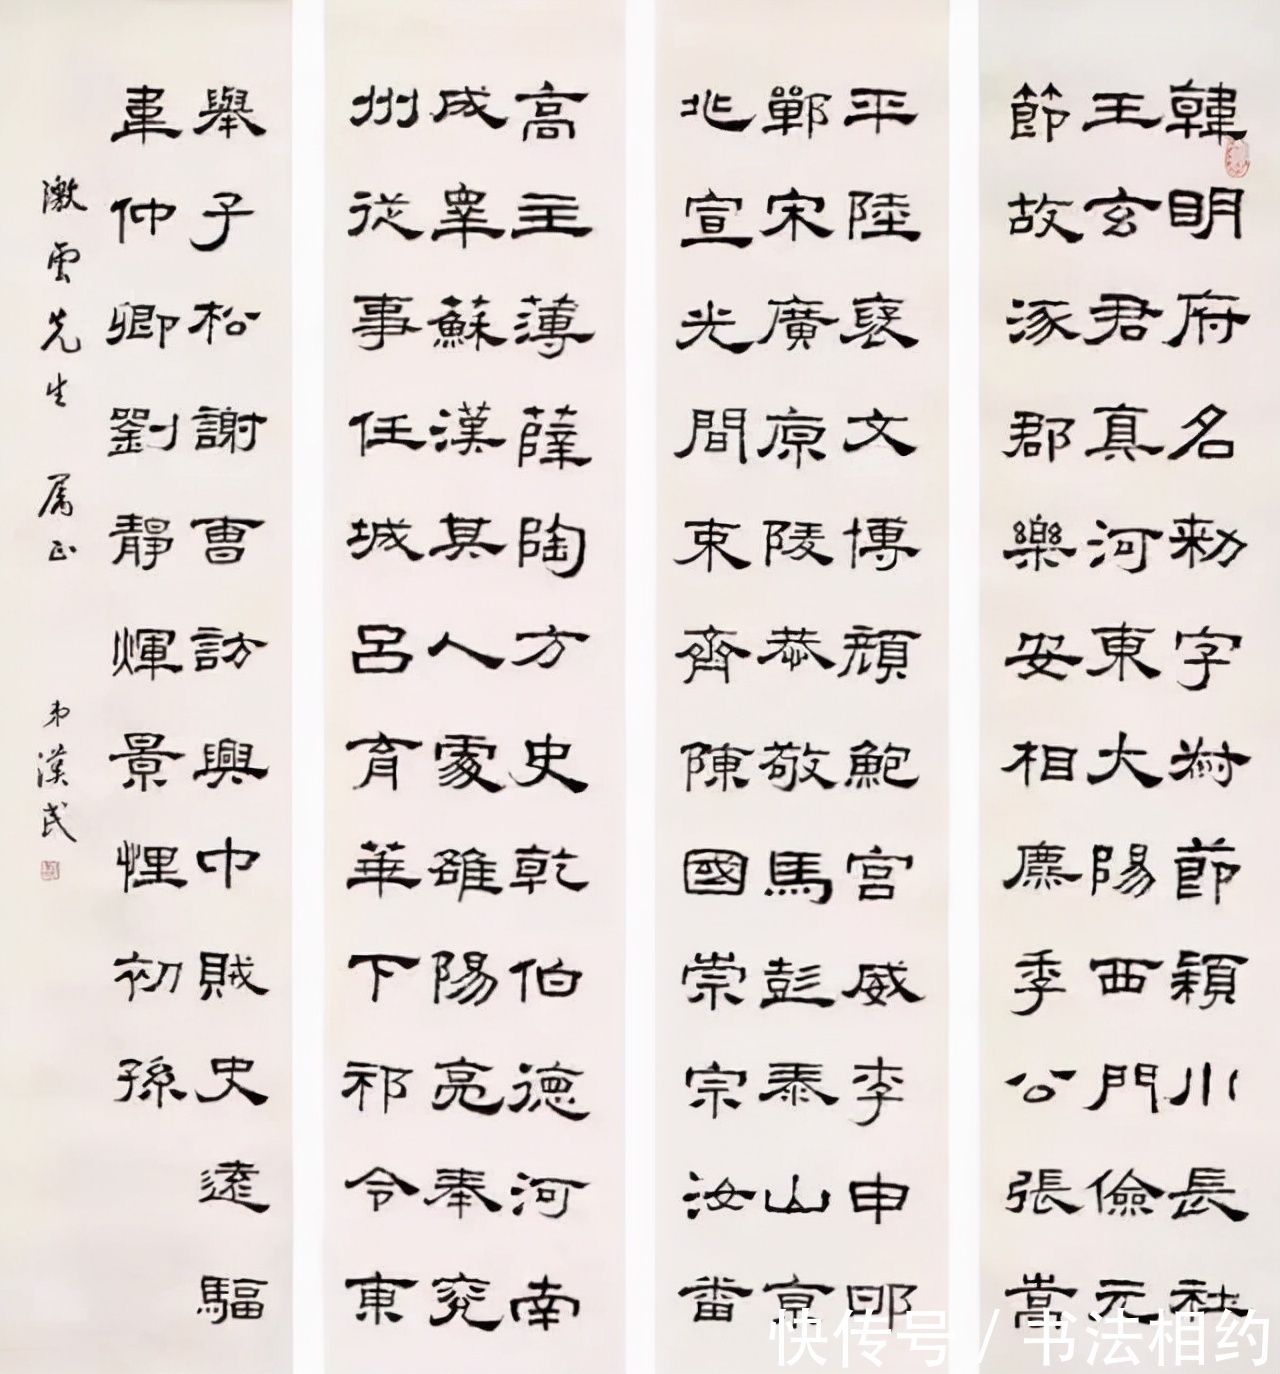 韓眀府名勑字叔節潁川長社
王玄君真河東大陽西門儉元
節故涿郡樂安相麃季公張嵩
平陸襃文博顏鮑宮威李申
鄲宋廣原陵恭敬馬彭泰山
北宣光間束齊陳國崇宗汝
高主薄薛陶方史乾伯德河南
成睾蘇漢其人處雒陽亮奉兖
州從事任城呂育華下祁令東
舉子松謝曹訪興巾賊史遠驅
韋仲卿劉靜煇景悝初孫
雲先生属正
弟漢民
快传号/书法相约